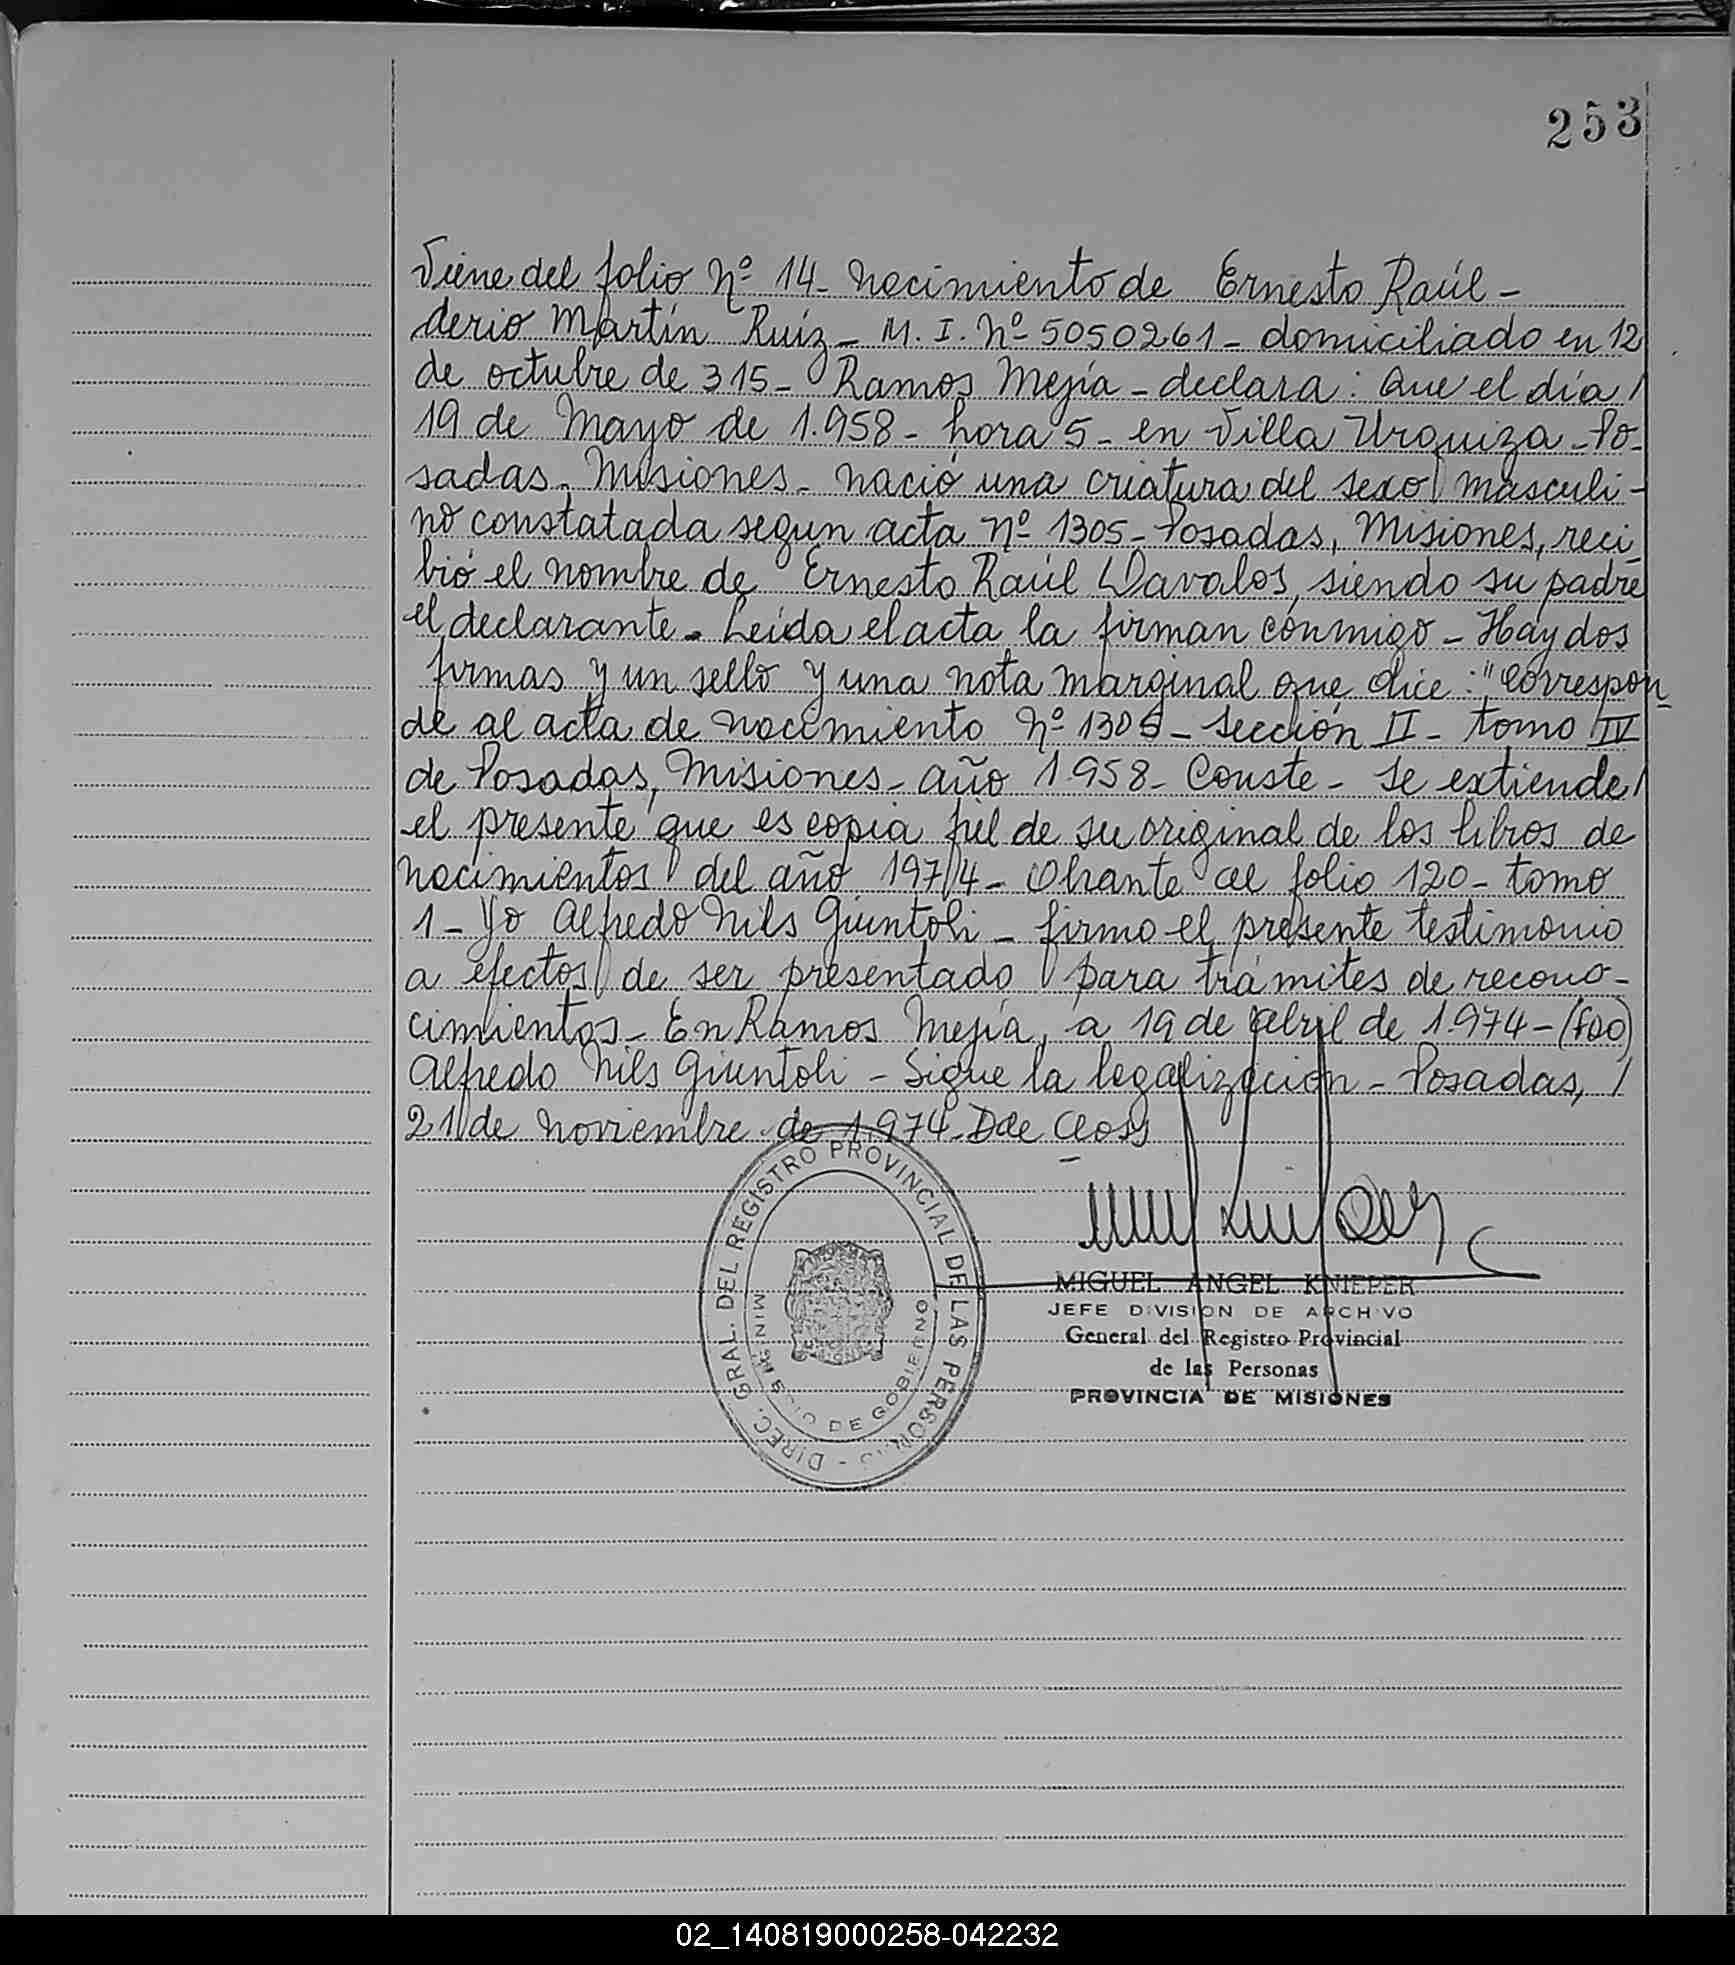 253
Viene del folio Nº 14- Nacimiento de Ernesto Raúl -
derio Martín Ruiz - M. I. Nº 5050261 - domiciliado en 12
de octubre de 315 - Ramos Mejía - declara: Que el día /
19 de Mayo de 1.958 - hora 5 - en Villa Urquiza - Po-
sadas, Misiones - nació una criatura del sexo masculi-
no constatada segun acta Nº 1305 - Posadas, Misiones, reci-
bió el nombre de Ernesto Raúl Davalos, siendo su padre
el declarante. Leída el acta la firman conmigo - Hay dos
firmas y un sello y una nota marginal que dice: "Correspon-
de al acta de nacimiento Nº 1305 - Sección II - tomo IV
de Posadas, Misiones - año 1958 - Conste - Se extiende /
el presente que es copia fiel de su original de los libros de
nacimientos del año 1974 - Obrante al folio 120 - tomo
1 - Yo Alfredo Nils Giuntoli - firmo el presente testimonio
a efectos de ser presentado para trámites de recono-
cimientos - En Ramos Mejía, a 19 de abril de 1.974 - (fdo)
Alfredo Nils Giuntoli - Sigue la legalización - Posadas, /
21 de Noviembre de 1.974
DIREC. GRAL. DEL REGISTRO PROVINCIAL DE LAS PERSONAS -
MINISTERIO DE GOBIERNO
MIGUEL ANGEL KNIEPER
JEFE DIVISION DE ARCHIVO
General del Registro Provincial
de las Personas
PROVINCIA DE MISIONES
02_140819000258-042232